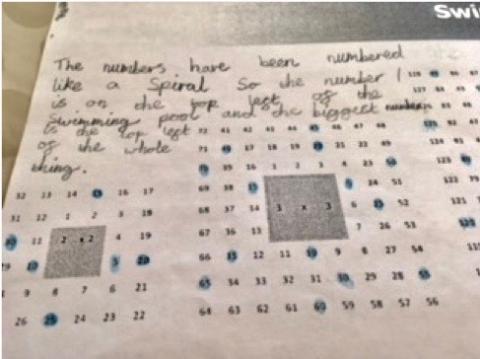 Swi
The numbers have been numbered
like a Spiral So the number 1
is on the top left of the
Swimming pool and the biggest number
is the top left
of the whole
thing.
72 41 42 43 44 45 46 47 48
71 40 17 18 19 20 21 22 49
39 16 1 2 3 4 23 50
69 38 15 5 24 51
68 37 14 3 x 3 6 25 52
67 36 13 7 26 53
66 35 12 11 10 9 8 27 54
65 34 33 32 31 30 29 28 55
64 63 62 61 60 59 58 57 56
32 13 14 15 16 17
31 12 1 2 3 18
30 11 2 x 2 4 19
29 10 5 20
9 8 7 6 21
26 25 24 23 22